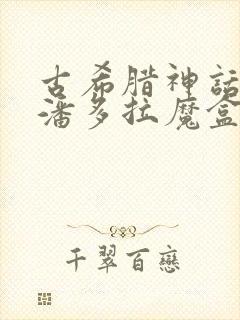 古希腊神话
潘多拉魔盒
千翠百戀